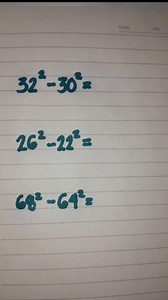 32²-30²=
26²-22²=
68²-64²=